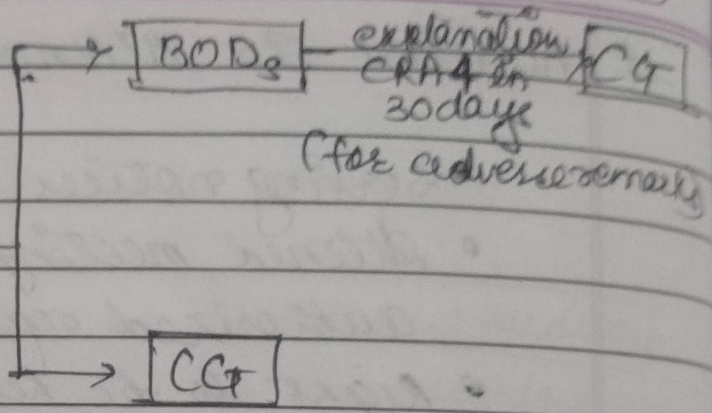 BODs explanation CG
CRA4 in
30 days
(for adverse remarks
CG